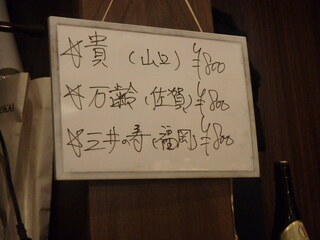 ☆貴(山口)¥800
☆万齢(佐賀)¥800
☆三井の寿(福岡)¥800
KAI